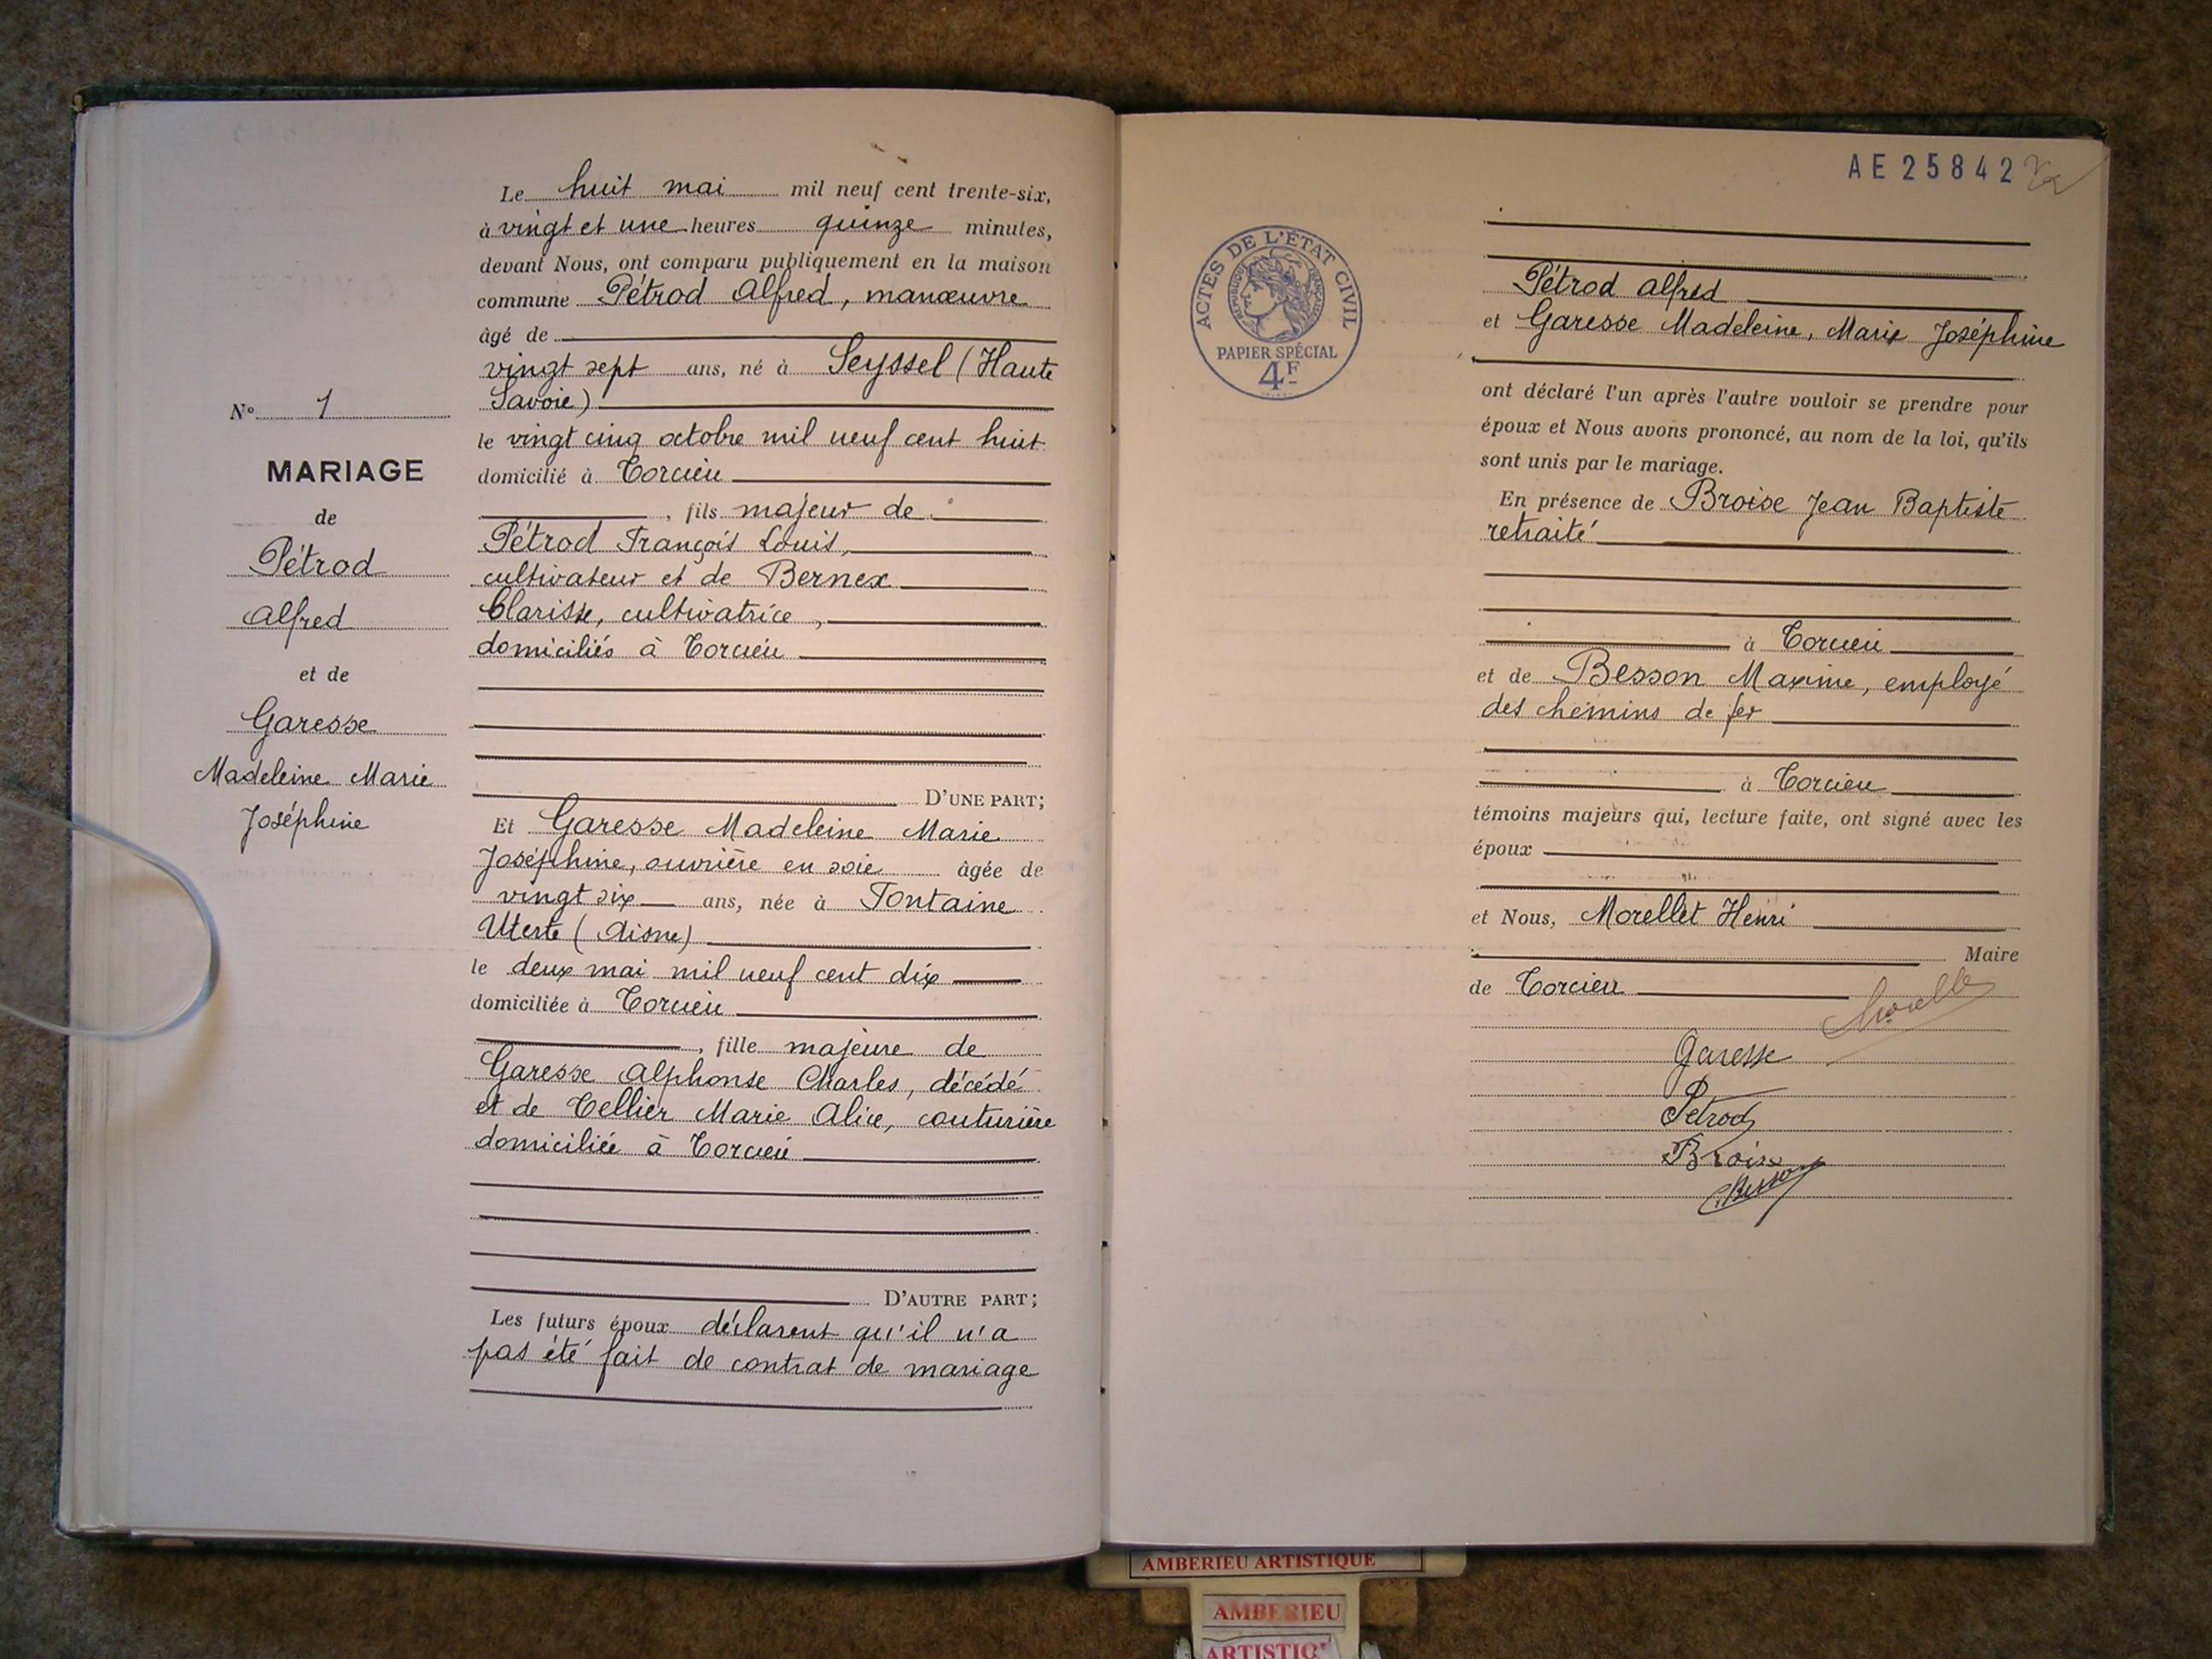 Le huit mai mil neuf cent trente-six,
à vingt et une heures quinze minutes,
devant Nous, ont comparu publiquement en la maison
commune Pétrod Alfred, manœuvre
âgé de
vingt sept ans, né à Seyssel (Haute
Savoie)
le vingt cinq octobre mil neuf cent huit
domicilié à Torcieu
, fils majeur de
Pétrod François Louis,
cultivateur et de Bernex
Clarisse, cultivatrice,
domiciliés à Torcieu
D'UNE PART;
Et Garesse Madeleine Marie
Joséphine, ouvrière en soie âgée de
vingt six ans, née à Fontaine
Uterte (Aisne)
le deux mai mil neuf cent dix
domiciliée à Torcieu
, fille majeure de
Garesse Alphonse Charles, décédé
et de Tellier Marie Alice, couturière
domiciliée à Torcieu
D'AUTRE PART;
Les futurs époux déclarent qu'il n'a
pas été fait de contrat de mariage
N° 1
MARIAGE
de
Pétrod
Alfred
et de
Garesse
Madeleine Marie
Joséphine
AE25842
ACTES DE L'ÉTAT CIVIL
RÉPUBLIQUE FRANÇAISE
PAPIER SPÉCIAL
4F
Pétrod Alfred
et Garesse Madeleine, Marie Joséphine
ont déclaré l'un après l'autre vouloir se prendre pour
époux et Nous avons prononcé, au nom de la loi, qu'ils
sont unis par le mariage.
En présence de Broise Jean Baptiste
retraité
à Torcieu
et de Besson Maxime, employé
des chemins de fer
à Torcieu
témoins majeurs qui, lecture faite, ont signé avec les
époux
et Nous, Morellet Henri
Maire
de Torcieu
Garesse
Pétrod
Broise
Besson
AMBERIEU ARTISTIQUE
AMBERIEU
ARTISTIQ